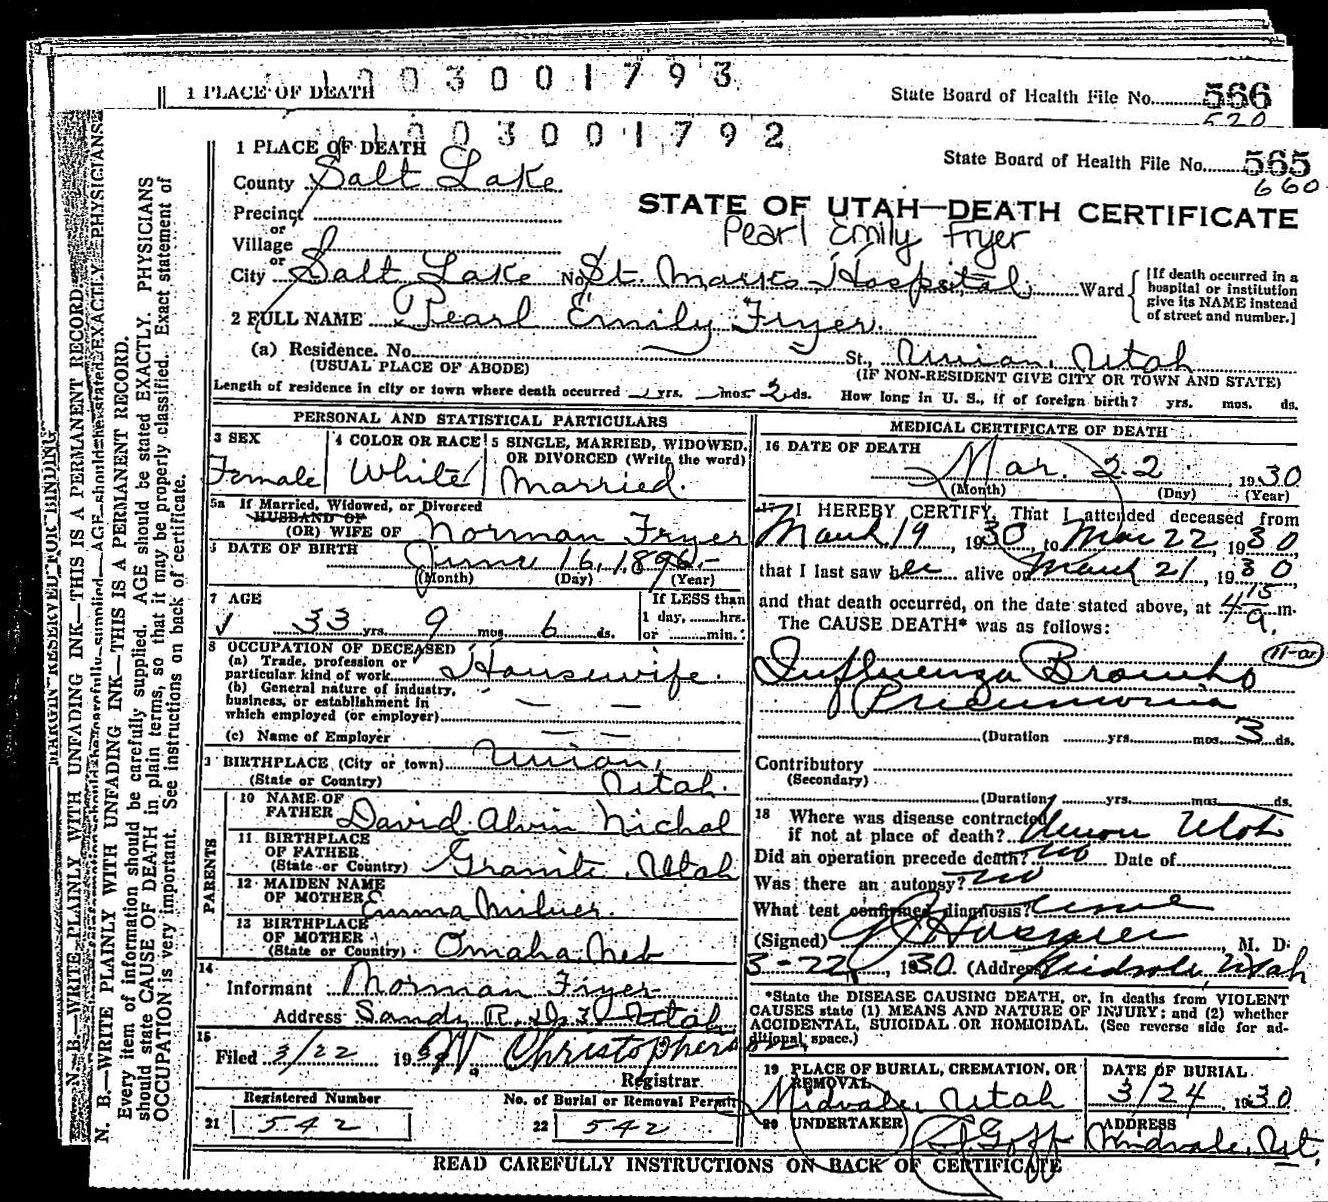 1003001793
1 PLACE OF DEATH
State Board of Health File No. 566
520
1003001792
1 PLACE OF DEATH
State Board of Health File No. 565
660
County Salt Lake
STATE OF UTAH—DEATH CERTIFICATE
Precinct
or
Village
Pearl Emily Fryer
or
City Salt Lake No. St. Marks Hospital St., Ward
[If death occurred in a hospital or institution give its NAME instead of street and number.]
2 FULL NAME Pearl Emily Fryer.
(a) Residence. No. St., Union, Utah
(USUAL PLACE OF ABODE) (IF NON-RESIDENT GIVE CITY OR TOWN AND STATE)
Length of residence in city or town where death occurred yrs. mos. 2 ds. How long in U. S., if of foreign birth? yrs. mos. ds.
PERSONAL AND STATISTICAL PARTICULARS
3 SEX
Female
4 COLOR OR RACE
White
5 SINGLE, MARRIED, WIDOWED, OR DIVORCED (Write the word)
Married.
5a If Married, Widowed, or Divorced
HUSBAND OF
(OR) WIFE OF Norman Fryer
6 DATE OF BIRTH June 16, 1896.-
(Month) (Day) (Year)
7 AGE
33 yrs. 9 mos. 6 ds.
If LESS than
1 day, hrs.
or min.
8 OCCUPATION OF DECEASED
(a) Trade, profession or
particular kind of work Housewife.
(b) General nature of industry,
business, or establishment in
which employed (or employer)
(c) Name of Employer
9 BIRTHPLACE (City or town) Union,
(State or Country) Utah.
PARENTS
10 NAME OF
FATHER David Alvin Nichol
11 BIRTHPLACE
OF FATHER
(State or Country) Granite, Utah
12 MAIDEN NAME
OF MOTHER Emma Milner.
13 BIRTHPLACE
OF MOTHER
(State or Country) Omaha, Neb
14
Informant Norman Fryer
Address Sandy R.D. 3 Utah
15
Filed 3/22 1930 W. Christopherson,
Registrar
Registered Number
21 542
No. of Burial or Removal Permit
22 542
MEDICAL CERTIFICATE OF DEATH
16 DATE OF DEATH
Mar. 22 1930
(Month) (Day) (Year)
17 I HEREBY CERTIFY, That I attended deceased from
March 19, 1930 to Mar 22, 1930,
that I last saw her alive on March 21, 1930
and that death occurred, on the date stated above, at 4 15 a. m.
The CAUSE DEATH* was as follows:
11-a
Influenza Broncho
Pneumonia
(Duration yrs. mos. 3 ds.
Contributory
(Secondary)
(Duration yrs. mos. ds.
18 Where was disease contracted
if not at place of death? Union Utah
Did an operation precede death? no Date of
Was there an autopsy? no
What test confirmed diagnosis?
(Signed) M. D.
3-22, 1930. (Address Midvale, Utah
*State the DISEASE CAUSING DEATH, or, in deaths from VIOLENT
CAUSES state (1) MEANS AND NATURE OF INJURY; and (2) whether
ACCIDENTAL, SUICIDAL OR HOMICIDAL. (See reverse side for additional space.)
19 PLACE OF BURIAL, CREMATION, OR REMOVAL
Midvale, Utah
DATE OF BURIAL
3/24, 1930
20 UNDERTAKER
Goff
ADDRESS
Midvale, Ut.
READ CAREFULLY INSTRUCTIONS ON BACK OF CERTIFICATE
MARGIN RESERVED FOR BINDING
N. B.—WRITE PLAINLY WITH UNFADING INK—THIS IS A PERMANENT RECORD.
N. B.—WRITE PLAINLY WITH UNFADING INK—THIS IS A PERMANENT RECORD.
Every item of information should be carefully supplied. AGE should be stated EXACTLY. PHYSICIANS
should state CAUSE OF DEATH in plain terms, so that it may be properly classified. Exact statement of
OCCUPATION is very important. See instructions on back of certificate.